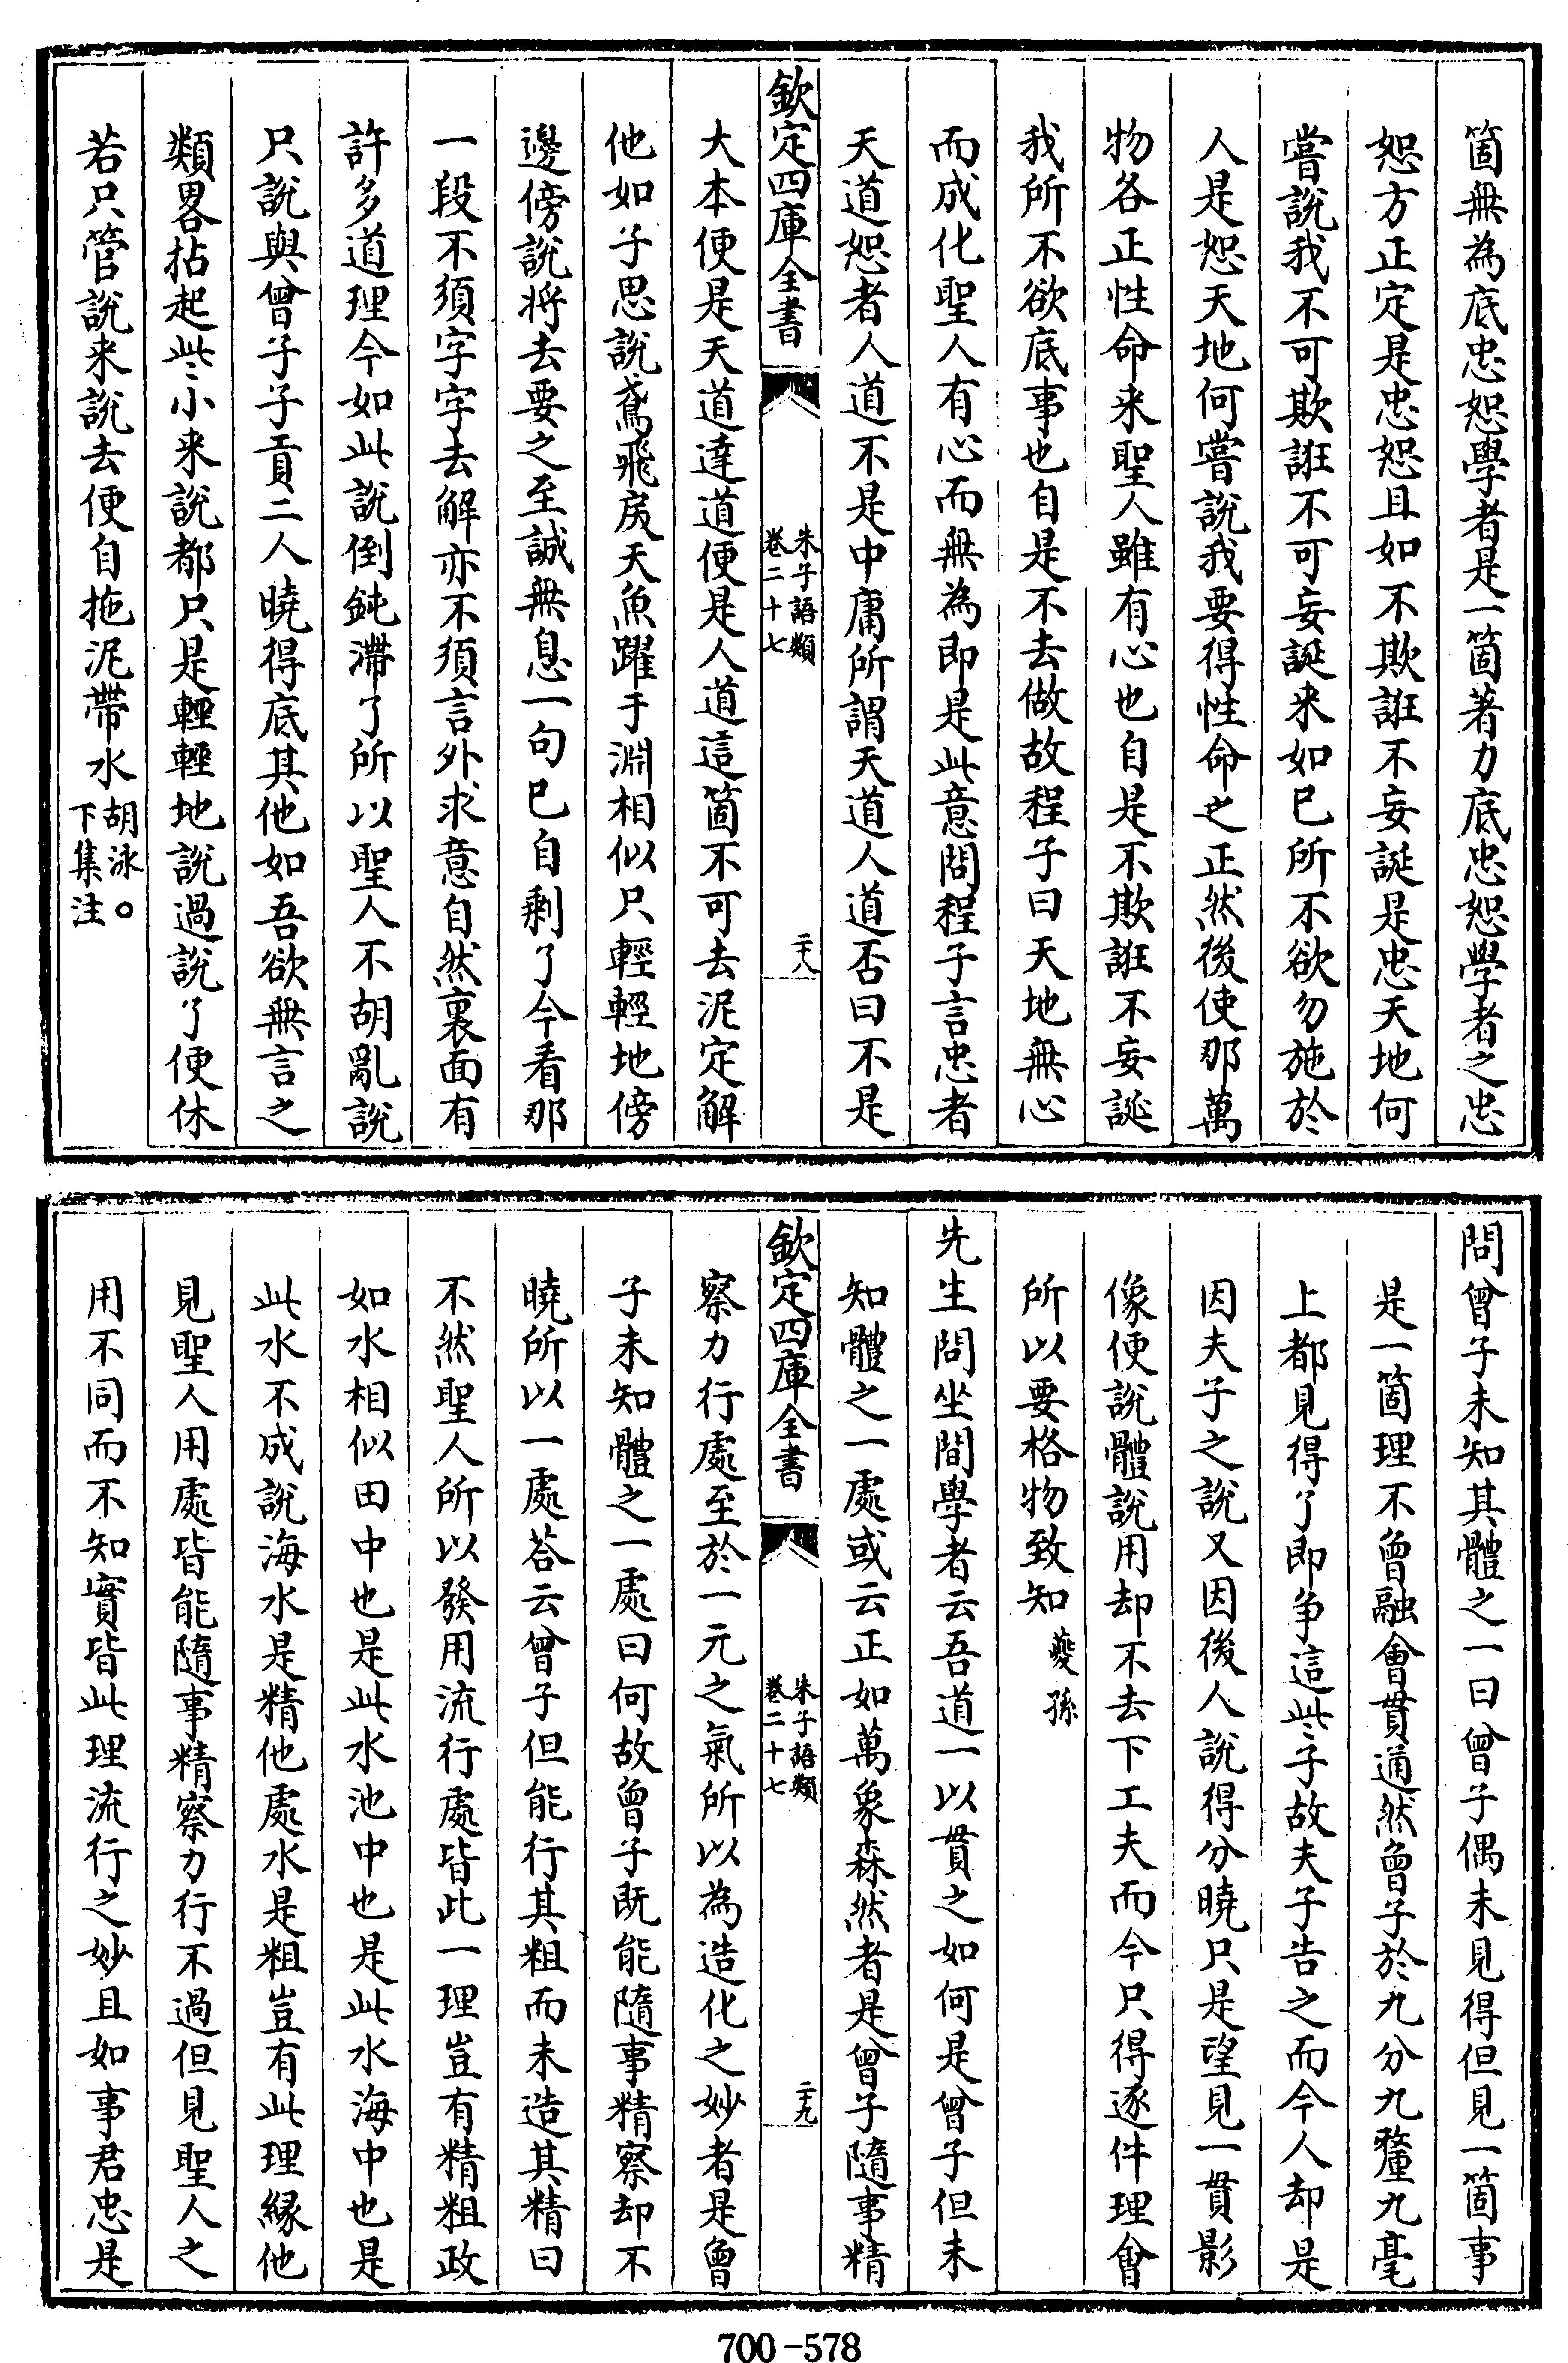 箇無為底忠恕學者是一箇著力底忠恕學者之忠
恕方正定是忠恕且如不欺誑不妄誕是忠天地何
嘗說我不可欺誑不可妄誕来如已所不欲勿施於
人是恕天地何嘗說我要得性命之正然後使那萬
物各正性命来聖人雖有心也自是不欺誑不妄誕
我所不欲底事也自是不去做故程子曰天地無心
而成化聖人有心而無為即是此意問程子言忠者
天道恕者人道不是中庸所謂天道人道否曰不是
欽定四庫全書
朱子語類
卷二十七
二十八
大本便是天道達道便是人道這箇不可去泥定解
他如子思說鳶飛戾天魚躍于淵相似只輕輕地傍
邊傍說将去要之至誠無息一句已自剩了今看那
一段不須字字去解亦不須言外求意自然裏面有
許多道理今如此說倒鈍滯了所以聖人不胡亂說
只說與曾子子貢二人曉得底其他如吾欲無言之
類畧拈起些小来說都只是輕輕地說過說了便休
若只管說来說去便自拖泥帶水胡泳○
下集注
問曾子未知其體之一曰曾子偶未見得但見一箇事
是一箇理不曾融會貫通然曾子於九分九釐九毫
上都見得了即争這些子故夫子告之而今人却是
因夫子之說又因後人說得分曉只是望見一貫影
像便說體說用却不去下工夫而今只得逐件理會
所以要格物致知夔孫
先生問坐間學者云吾道一以貫之如何是曾子但未
知體之一處或云正如萬象森然者是曾子隨事精
欽定四庫全書
朱子語類
卷二十七
二十九
察力行處至於一元之氣所以為造化之妙者是曾
子未知體之一處曰何故曾子既能隨事精察却不
曉所以一處荅云曾子但能行其粗而未造其精曰
不然聖人所以發用流行處皆此一理豈有精粗政
如水相似田中也是此水池中也是此水海中也是
此水不成說海水是精他處水是粗豈有此理緣他
見聖人用處皆能隨事精察力行不過但見聖人之
用不同而不知實皆此理流行之妙且如事君忠是
700-578